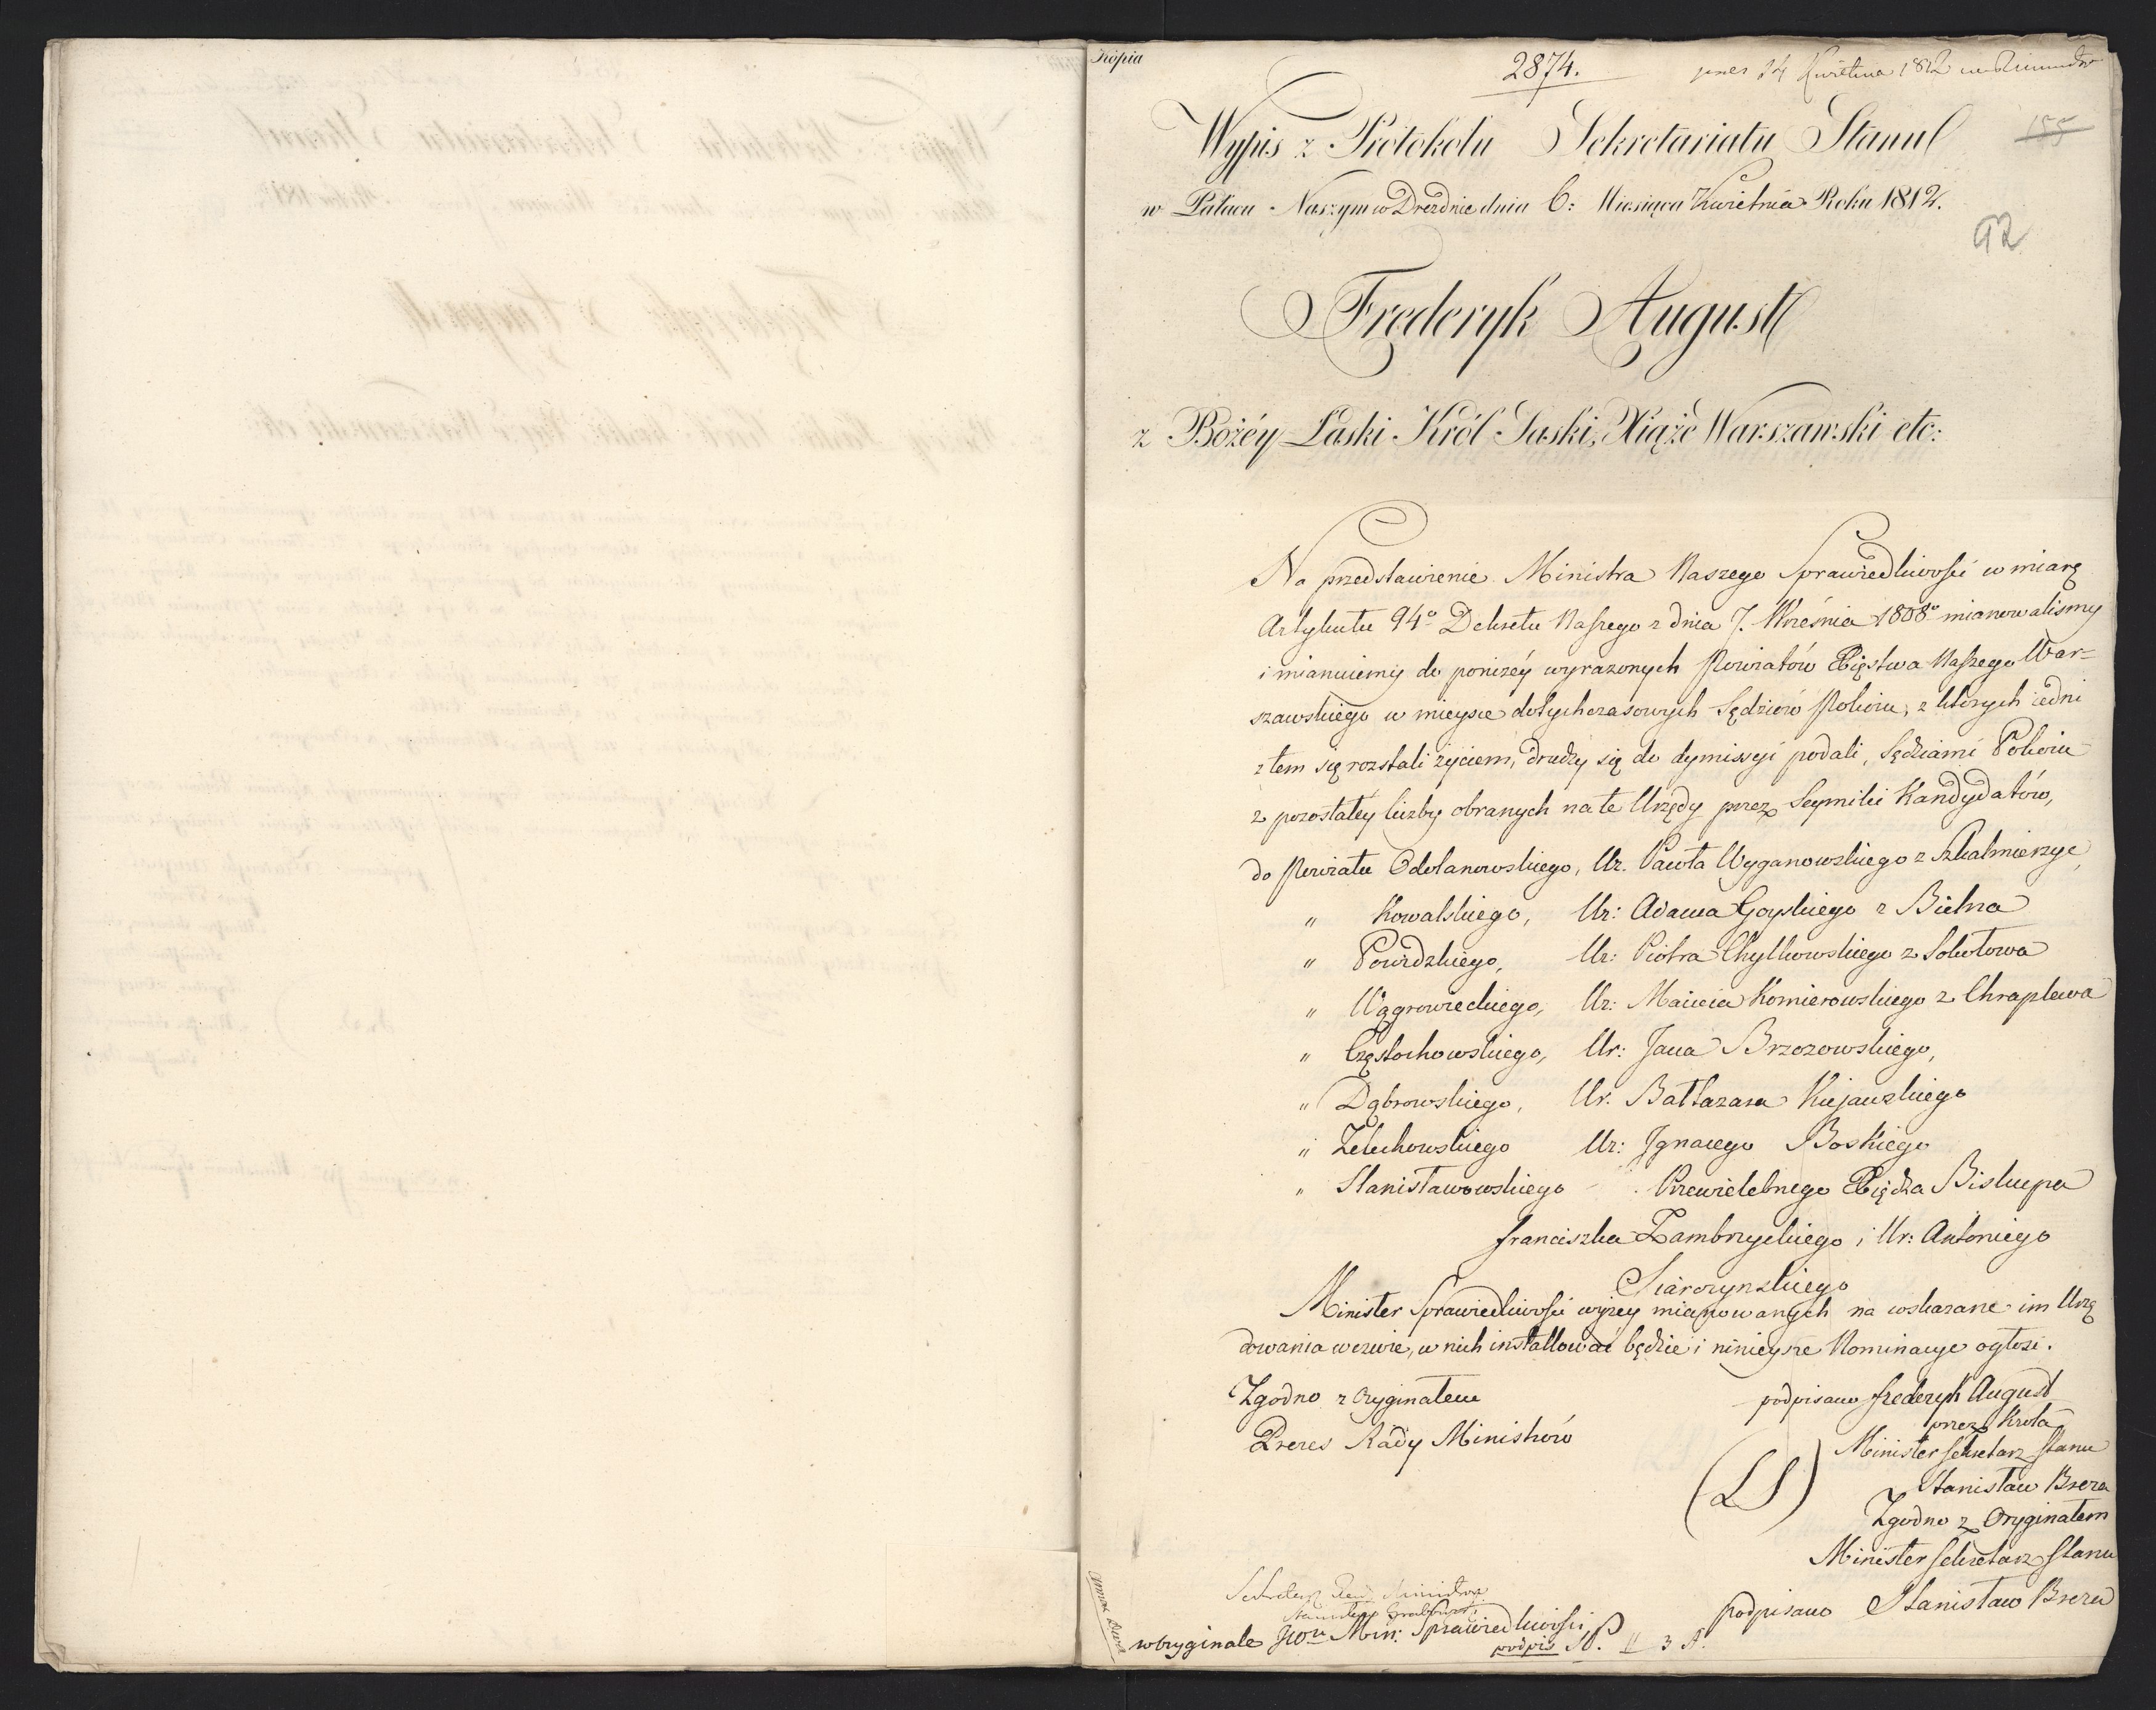 Kopia
2874.
14 Kwietnia 1812
155
Wypis z Protokołu Sekretariatu Stanu
w Pałacu Naszym w Dreźdnie dnia 6: Miesiąca Kwietnia Roku 1812.
92
Frederyk August
z Bożéy Łaski Król Saski, Xiążę Warszawski etc:
Na przedstawienie Ministra Naszego Sprawiedliwości w miarę
Artykułu 94º Dekretu Naszego z dnia 7. Września 1808º mianowalismy
i mianuiemy do poniżéy wyrażonych Powiatów Xięstwa Naszego War=
szawskiego w mieysce dotychczasowych Sędziów Pokoiu, z których iedni
z tem się rozstali życiem, drudzy się do dymissyi podali, Sędziami Pokoiu
z pozostałéy liczby obranych na te Urzędy przez Seymiki Kandydatów,
do Powiatu Odolanowskiego, Ur. Pawła Wyganowskiego z Szkalmierzyc,
" Kowalskiego, Ur: Adama Goyskiego z Bielna
" Powidzkiego, Ur: Piotra Chylkowskiego z Sokołowa
" Wągrowieckiego, Ur: Macieia Komierowskiego z Chraplewa
" Częstochowskiego, Ur: Jana Brzozowskiego,
" Dąbrowskiego, Ur. Baltazara Kujawskiego
" Żelechowskiego Ur: Ignacego Boskiego
" Stanisławowskiego Przewielebnego Xiędza Biskupa
Franciszka Zambrzyckiego i Ur: Antoniego
Siarczynskiego
Minister Sprawiedliwości wyżey mianowanych na wskazane im Urzę
dowania wezwie, w nich installować będzie i ninieysze Nominacye ogłosi.
Zgodno z Oryginałem
Prezes Rady Ministrów
podpisano Frederyk August
przez Krola
Minister Sekretarz Stanu
Stanisław Breza
(LS)
Zgodno z Oryginałem
Minister Sekretarz Stanu
podpisano Stanisław Breza
Sekretarz Rady Ministrów
Stanisław Grabowski
w Oryginale Min: Sprawiedliwości
podpis